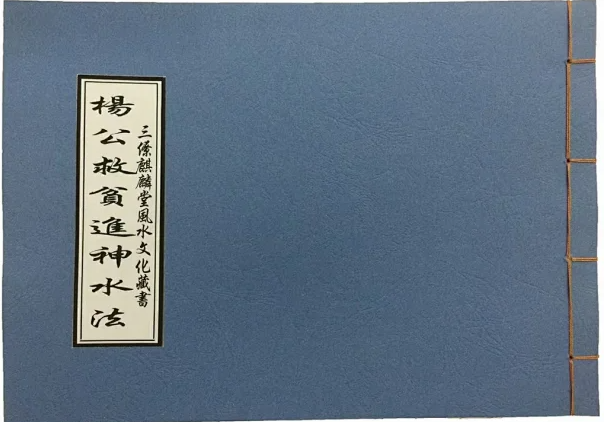 三僚麒麟堂風水文化藏書
楊公救貧進神水法